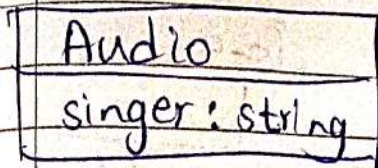 Audio
singer: string